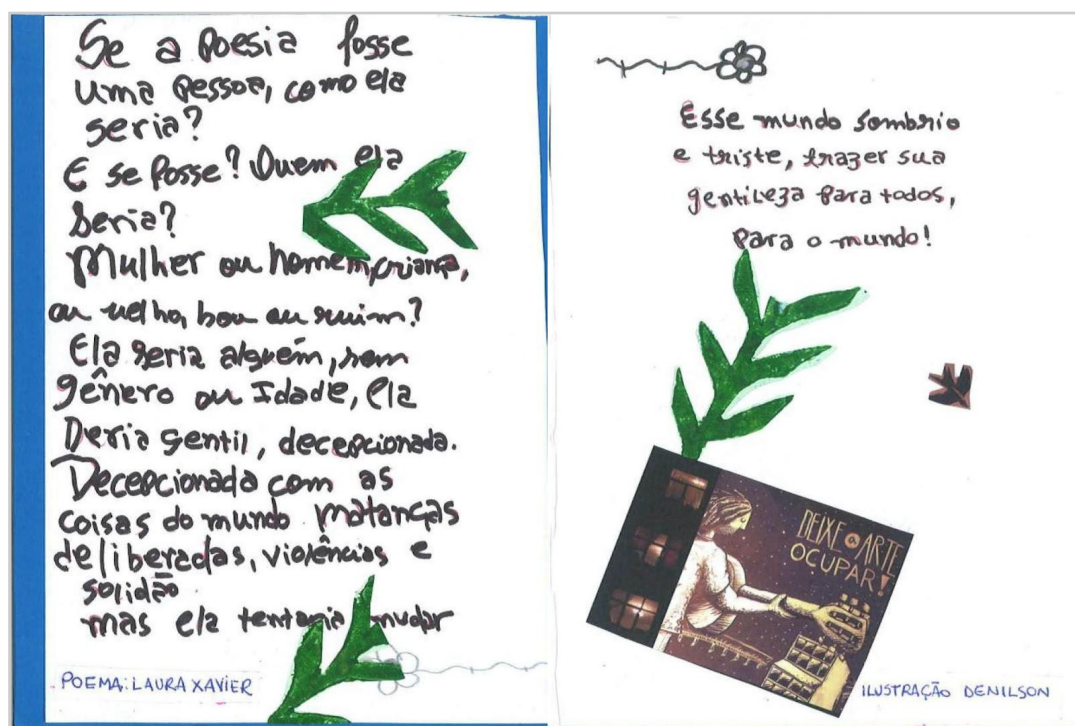 Se a Poesia fosse
uma pessoa, como ela
seria?
E se fosse? Quem ela
Seria?
Mulher ou homem, criança,
ou velho, bou ou ruim?
Ela seria alguém, sem
gênero ou Idade, ela
Seria gentil, decepcionada.
Decepcionada com as
coisas do mundo matanças
deliberadas, violências e
solidão
mas ela tentaria mudar
POEMA: LAURA XAVIER
Esse mundo sombrio
e triste, trazer sua
gentileza para todos,
Para o mundo!
DEIXE A ARTE
OCUPAR!
ILUSTRAÇÃO DENILSON